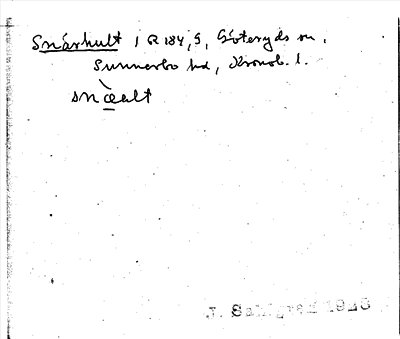 Snårhult 1 R 184, S, Göteryds sn,
Sunnerbo hd, Kronob. l.
snœ̀alt
J. Sahlgren 1926